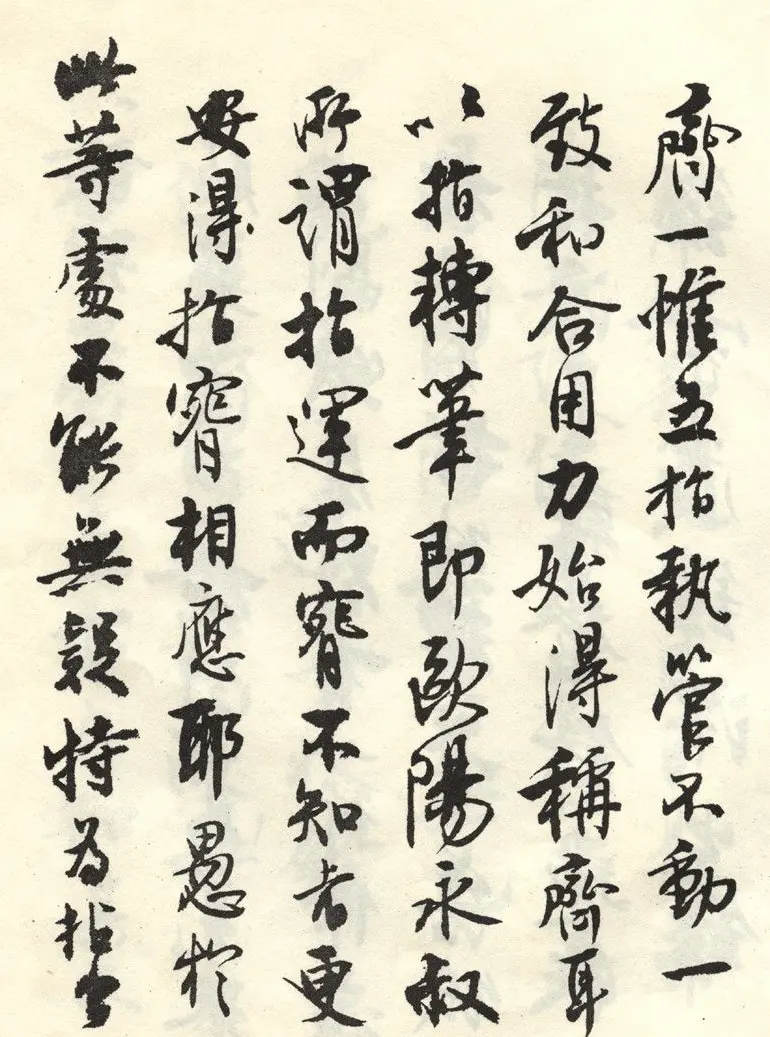 齊一惟五指執管不動一
致和合用力始得稱齊耳
以指轉筆即歐陽永叔
所謂指運而腕不知者更
安得指腕相應耶愚於
此等處不能無疑特為拈出